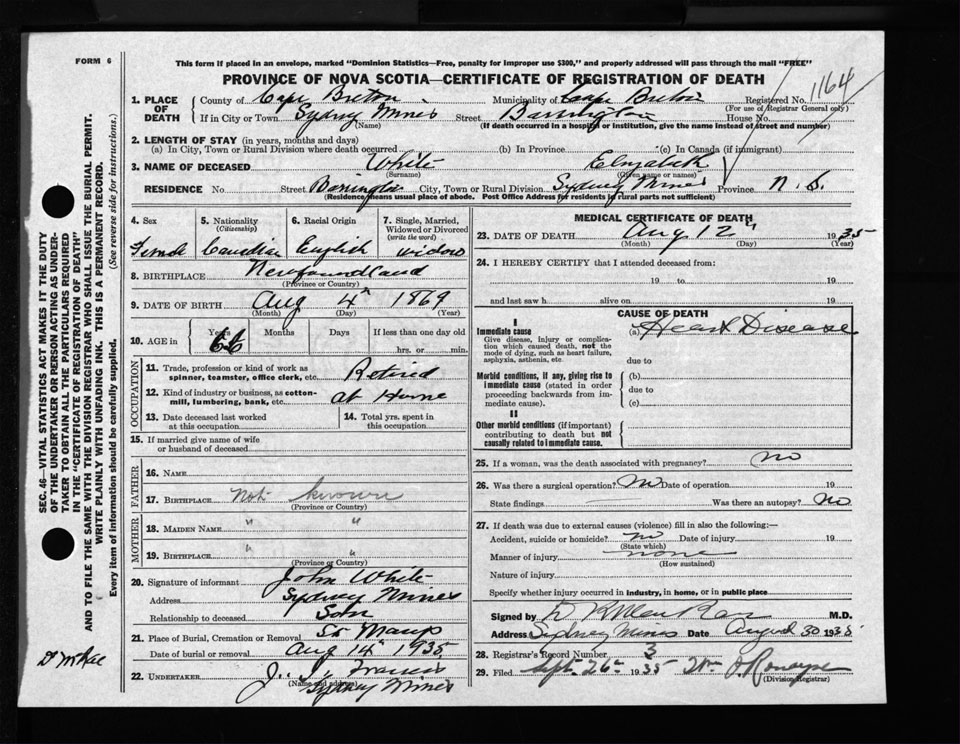 FORM 6
This form if placed in an envelope, marked "Dominion Statistics—Free, penalty for improper use $300," and properly addressed will pass through the mail "FREE"
PROVINCE OF NOVA SCOTIA—CERTIFICATE OF REGISTRATION OF DEATH
1164
1. PLACE OF DEATH
County of Cape Breton Municipality of Cape Breton Registered No.
(For use of Registrar General only)
If in City or Town Sydney Mines Street Barrington House No.
(Name) (If death occurred in a hospital or institution, give the name instead of street and number)
2. LENGTH OF STAY (in years, months and days)
(a) In City, Town or Rural Division where death occurred (b) In Province (c) In Canada (if immigrant)
3. NAME OF DECEASED White Elizabeth
(Surname) (Given name or names)
RESIDENCE No. Street Barrington City, Town or Rural Division Sydney Mines Province N. S.
(Residence means usual place of abode. Post Office Address for residents in rural parts not sufficient)
4. Sex 5. Nationality (Citizenship) 6. Racial Origin 7. Single, Married, Widowed or Divorced (write the word)
Female Canadian English widow
8. BIRTHPLACE Newfoundland
(Province or Country)
9. DATE OF BIRTH Aug 4th 1869
(Month) (Day) (Year)
10. AGE in Years Months Days If less than one day old
66 hrs. or min.
OCCUPATION
11. Trade, profession or kind of work as spinner, teamster, office clerk, etc. Retired
12. Kind of industry or business, as cotton-mill, lumbering, bank, etc. at Home
13. Date deceased last worked at this occupation
14. Total yrs. spent in this occupation
15. If married give name of wife or husband of deceased
FATHER
16. NAME
17. BIRTHPLACE Not known
(Province or Country)
MOTHER
18. MAIDEN NAME " "
19. BIRTHPLACE " "
(Province or Country)
20. Signature of informant John White
Address Sydney Mines
Relationship to deceased Son
21. Place of Burial, Cremation or Removal St Marys
Date of burial or removal Aug 14th 1935
22. UNDERTAKER J. J. Francis
(Name and address) Sydney Mines
MEDICAL CERTIFICATE OF DEATH
23. DATE OF DEATH Aug 12th 1935
(Month) (Day) (Year)
24. I HEREBY CERTIFY that I attended deceased from:
19 to 19
and last saw h alive on 19
CAUSE OF DEATH
I
Immediate cause (a) Heart Disease
Give disease, injury or complication which caused death, not the mode of dying, such as heart failure, asphyxia, asthenia, etc.
due to
Morbid conditions, if any, giving rise to immediate cause (stated in order proceeding backwards from immediate cause).
(b)
due to
(c)
II
Other morbid conditions (if important) contributing to death but not causally related to immediate cause.
25. If a woman, was the death associated with pregnancy? no
26. Was there a surgical operation? No Date of operation 19
State findings Was there an autopsy? No
27. If death was due to external causes (violence) fill in also the following:—
Accident, suicide or homicide? no Date of injury 19
(State which)
Manner of injury none
(How sustained)
Nature of injury
Specify whether injury occurred in industry, in home, or in public place
Signed by M.D.
Address Sydney Mines Date August 30 1935
28. Registrar's Record Number 3
29. Filed Sept. 26th 1935
(Division Registrar)
SEC. 46—VITAL STATISTICS ACT MAKES IT THE DUTY
OF THE UNDERTAKER OR PERSON ACTING AS UNDERTAKER TO OBTAIN ALL THE PARTICULARS REQUIRED
IN THE "CERTIFICATE OF REGISTRATION OF DEATH"
AND TO FILE THE SAME WITH THE DIVISION REGISTRAR WHO SHALL ISSUE THE BURIAL PERMIT.
WRITE PLAINLY WITH UNFADING INK. THIS IS A PERMANENT RECORD.
Every item of information should be carefully supplied. (See reverse side for instructions.)
Dr McRae